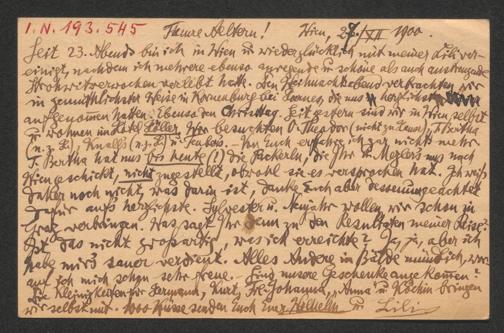 I. N. 193.545
Theure Aeltern! Wien, 27/XII 1900.
Seit 23. Abends bin ich in Wien u wieder glücklich mit meiner Lili ver-
einigt, nachdem ich mehrere ebenso anregende u schöne als auch anstrengende
Strohwitwerwochen verlebt hatte. Den Weihnachtsabend verbrachten wir
in gemüthlichster Weise in Korneuburg bei die uns herzlichst
aufgenommen hatten. Ebenso den Christtag. Seit gestern sind wir in Wien selbst
u wohnen im Hotel Wir besuchten O. Theodor (nicht zu Hause), T. Bertha
(n. z. H.), (n. z. H.) u Von Euch erfuhr ich gar nichts mehr
T. Bertha hat uns bis heute (!) die Packerln, die Ihr u uns nach
Wien geschickt, nicht zugestellt, obwohl sie es versprochen hat. Ich weiß
daher noch nicht, was darin ist, danke Euch aber dessenungeachtet
dafür aufs herzlichste. Sylvester u. Neujahr wollen wir schon in
Graz verbringen. Was sagt Ihr denn zu den Resultaten meiner Reise?
Ist das nicht großartig, was ich erreichte? Ja, ja, aber ich
habe mir's sauer verdient. Alles Andere in Bälde mündlich, wor-
auf ich mich schon sehr freue. Sind unsere Geschenke angekommen?
Die Kleinigkeiten für Hermann, Kurt, Johanna, Anna u Köchin bringen
wir selbst mit. 1000 Küsse senden Euch Euer Wilhelm u Lili